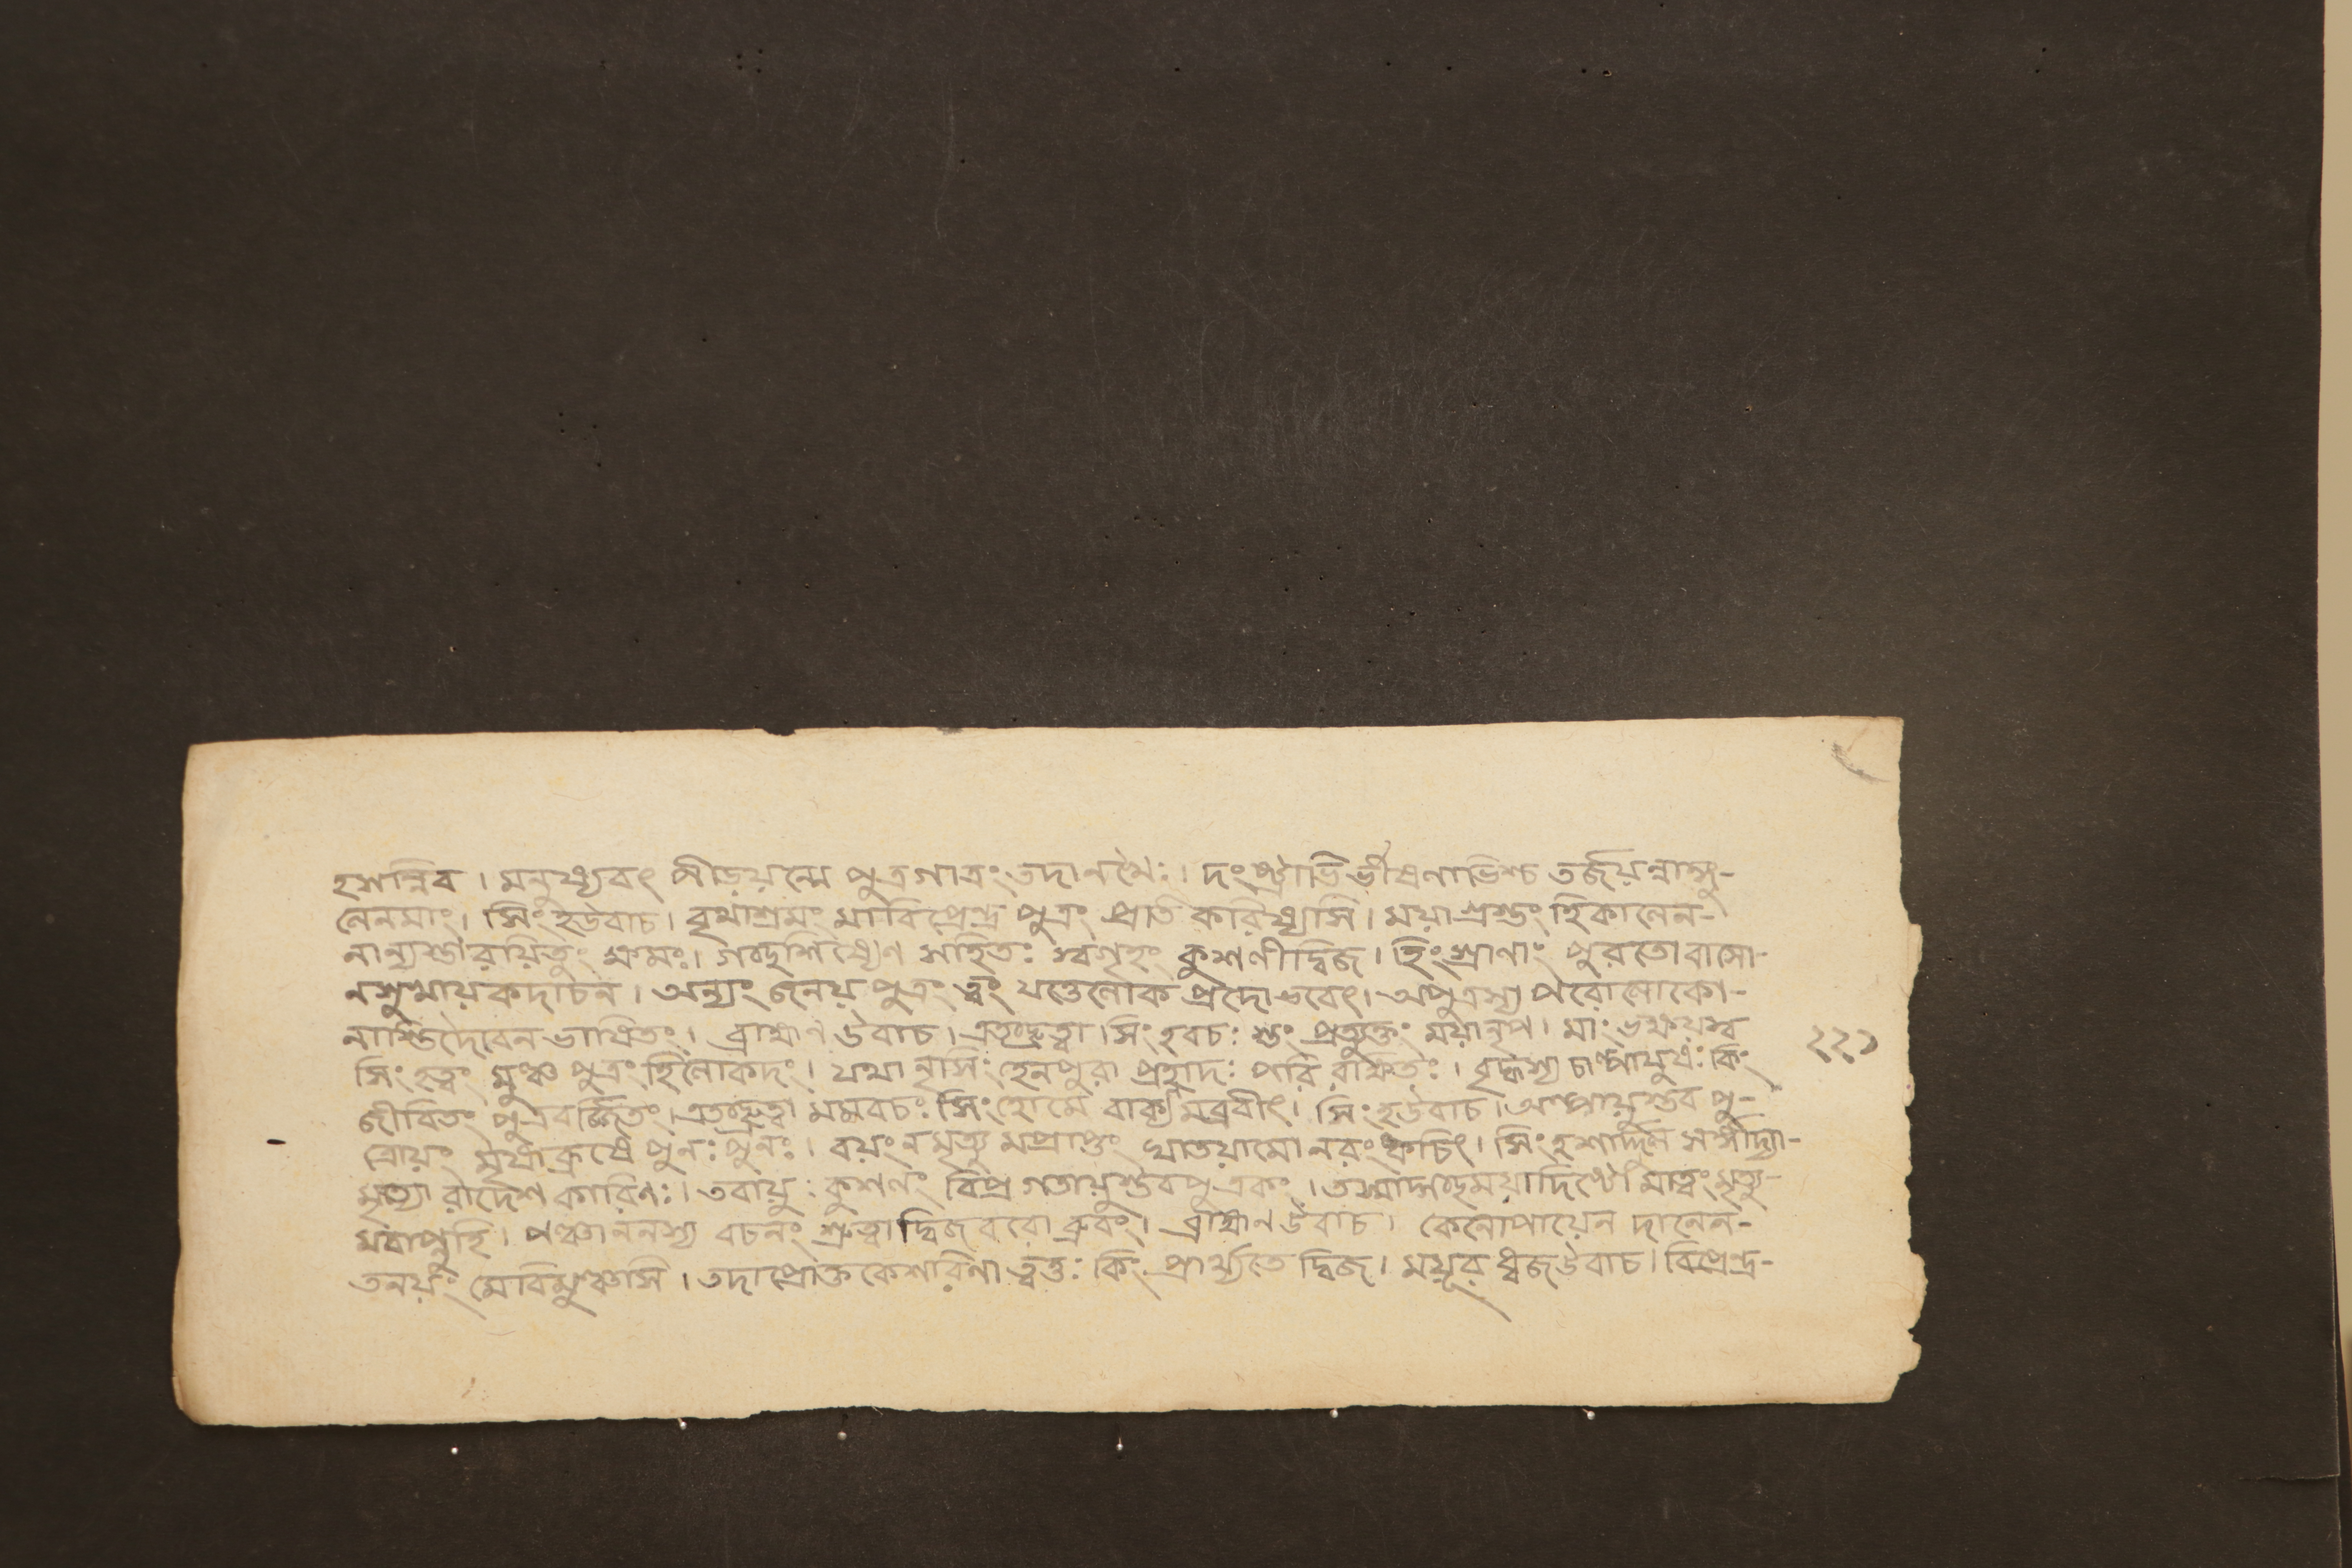 হসন্নিব। মনুষ্যবৎ পীড়য়ন্মে পুত্রগাত্রং তদানখৈঃ। দংষ্ট্রাভির্ভীষণাভিশ্চ তর্জয়ন্নাঙ্গু-
লেনমাং। সিংহউবাচ। বৃথাশ্রমং মাবিপ্রেন্দ্র পুত্রং প্রতি করিষ্যসি। ময়া গ্রস্তং হিকালেন-
নান্যস্তারয়িতুং ক্ষমঃ। গচ্ছশিষ্যেণ সহিতঃ স্বগৃহং কুশলীদ্বিজ। হিংস্রাণাং পুরতোবাসো-
নসুখায়কদাচন। অন্যং জনয় পুত্রং ত্বং যস্তেলোক প্রদোভবেৎ। অপুত্রস্য পরোলোকো-
নাস্তিদৈবেন ভাষিতং। ব্রাহ্মণ উবাচ। এতচ্ছ্রুত্বা সিংহবচঃ প্রত্যুক্তং ময়ানৃপ। মাং ভক্ষয়স্ব
সিংহত্বং মুঞ্চ পুত্রং হিলোকদং। যথা নৃসিংহেনপুরা প্রহ্লাদঃ পরি রক্ষিতঃ। বৃদ্ধস্য চাল্পায়ুষঃ কিং
জীবিতং পুত্রবর্জ্জিতং। এতচ্ছ্রুত্বা মমবচঃ সিংহোমে বাক্যমব্রবীৎ। সিংহউবাচ। অল্পায়ুস্তব পু-
ত্রোয়ং পুনঃ পুনঃ। বয়ংনমৃত্যু মপ্রাপ্তং ঘাতয়ামো নরং ক্বচিৎ। সিংহশার্দ্দূল সর্পাদ্যা-
মৃত্যো রাদেশ কারিণঃ। তবায়ুঃ কুশলং বিপ্র গতায়ুস্তবপুত্রকঃ। তস্মাদ্গচ্ছময়াদিষ্টো মাত্বং মৃত্যু-
মবাপ্নুহি। পঞ্চাননস্য বচনং শ্রুত্বা দ্বিজবরো ব্রুবং। ব্রাহ্মণ উবাচ। কেনোপায়েন দানেন-
তনয়ং মেবিমুঞ্চসি। তদাপ্রোক্ত কেশরিণা ত্বত্তঃ কিং প্রার্থ্যতে দ্বিজ। ময়ূর ধ্বজউবাচ। বিপ্রেন্দ্র-
২২১